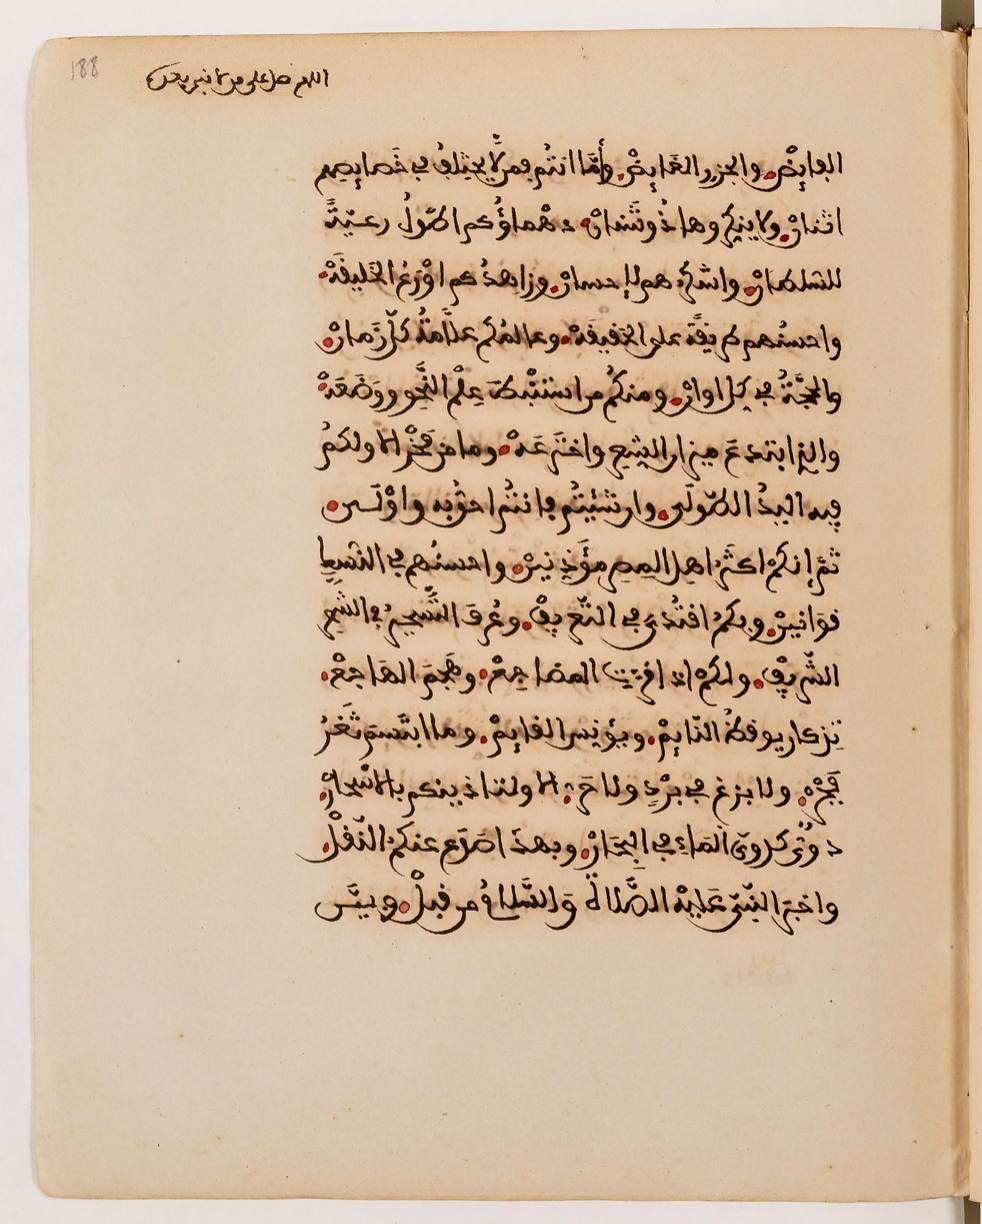 188
اللهم صل على من لا نبي بعده
الفايض والجزر الغايض وأمّا انتُم فمن لّا يختلفُ في خَصايِصِهم
اثنان ولا ينكر وها ذُو شَنئان دهْماؤُكم اطْوَلُ رعيّةً
للسلطان واشكرهم للإحسان وزاهدُكم اوْرَعُ الخَليفَهْ
واحسنُهم طريقَةً على الحقيقَهْ وعالمُكم علّامةُ كلّ زَمانْ
والحجَّةُ في كل اوانْ ومنكُم من استنبْطَ عِلْم النَّحو ووَضَعَهْ
والذي ابتدعَ ميزان الشعر واخترَعَهْ وما من فَخْر الا ولكمُ
فيه اليدُ الطّولَى وان شئتُم فانتُم احقُّ به واوْلَى
ثمّ إنكمْ اكثَرُ اهل المِصر مؤَذِنينْ واحسنُهم في النّسك
قوانينْ وبكمُ اقتُدي في التّعريفْ وعُرِفَ التَّسحيرُ في الشهر
الشّريفْ ولكمْ اذا قرّتِ المضاجعْ وهَجَعَ الهاجعْ
تذكار يوقظُ النّايمْ ويؤنِس القايمْ وما ابتَسَم ثَغرُ
فَجْر ولا بزغ في برْدٍ ولا حَرّ الا ولتاذينكم بالاسْحارْ
دوُيّ كدويّ الماء في البِحَارْ وبهذا صَدَع عنكمُ النّقلْ
واخبَر النبيّ عَلَيهْ الصَّلاةُ وَالسَّلامُ من قبلْ وبيَّن